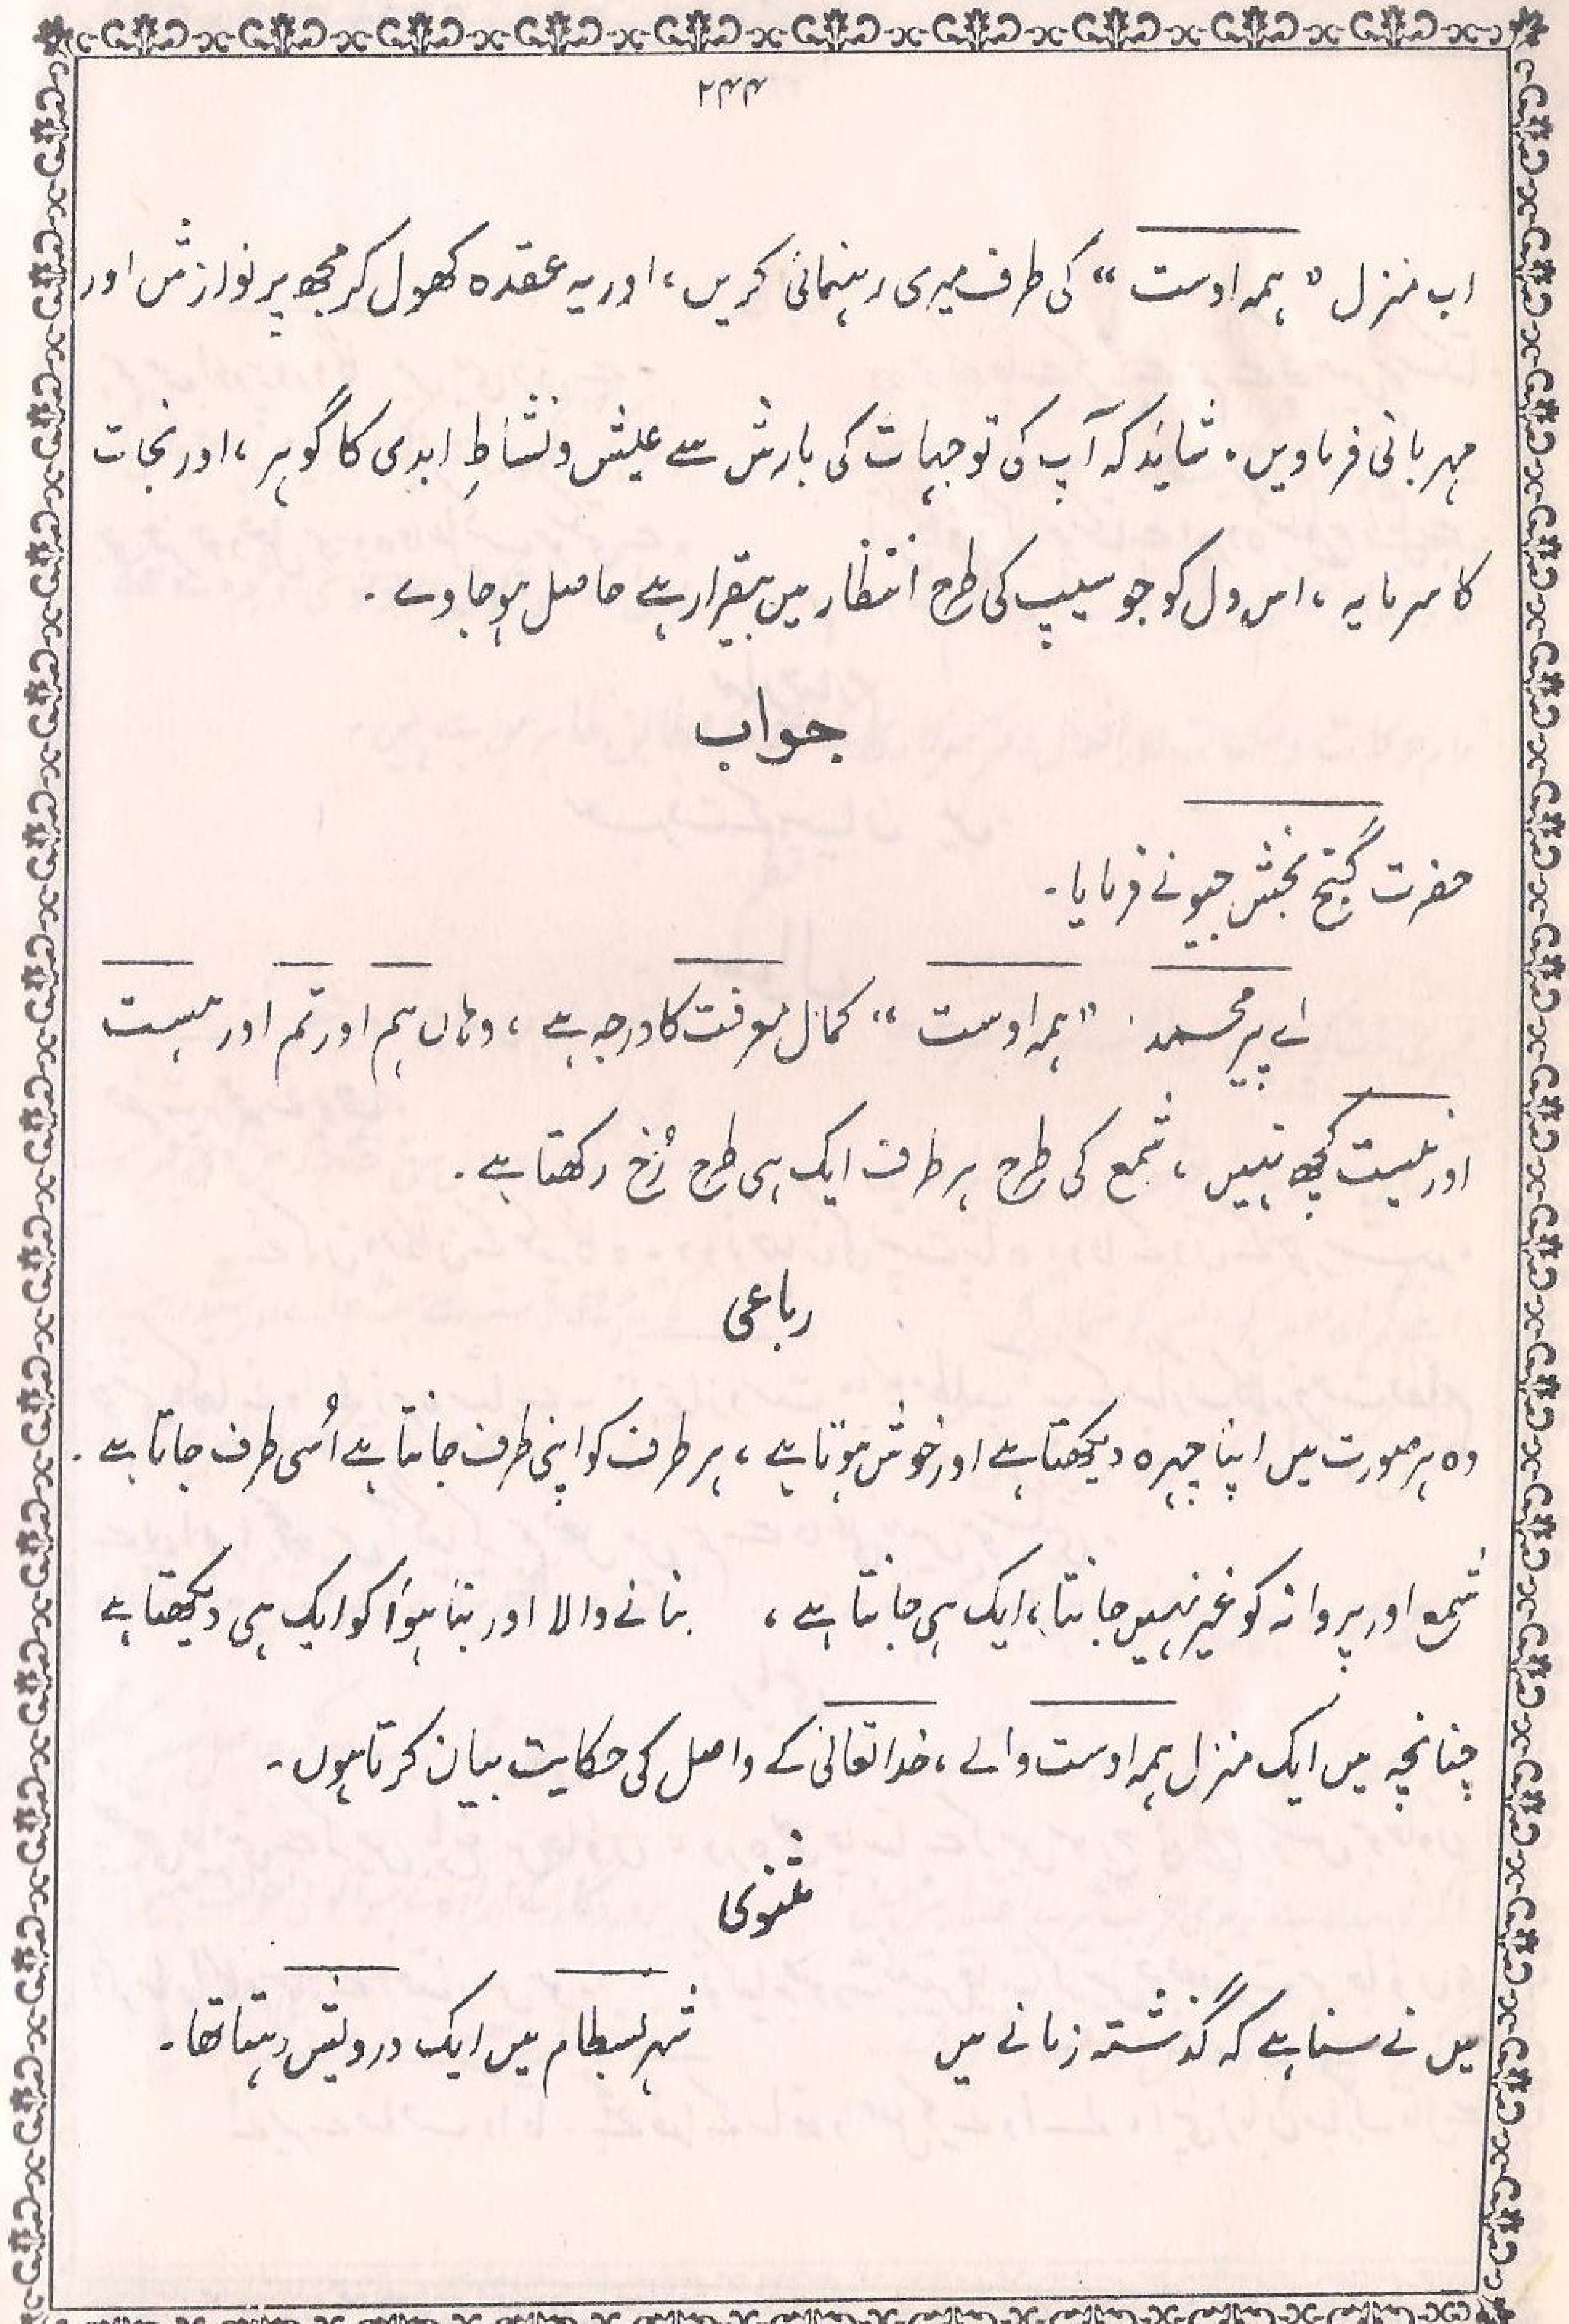 ۲۴۴
اب منزل "ہمہ اوست" کی طرف میری رہنمائی کریں، اور یہ عقدہ کھول کر مجھ پر نوازش اور
مہربانی فرماویں۔ شائد کہ آپ کی توجہات کی بارش سے عیش و نشاطِ ابدی کا گوہر، اور نجات
کا سرمایہ، اس دل کو جو سیپ کی طرح انتظار میں بیقرار ہے حاصل ہو جاوے۔
جواب
حضرت گنج بخش جیو نے فرمایا۔
اے پیر محمد۔ "ہمہ اوست" کمال معرفت کا درجہ ہے، وہاں ہم اور تم اور ہست
اور نیست کچھ نہیں، شمع کی طرح ہر طرف ایک ہی طرح رُخ رکھتا ہے۔
رباعی
وہ ہر صورت میں اپنا چہرہ دیکھتا ہے اور خوش ہوتا ہے، ہر طرف کو اپنی طرف جانتا ہے اُسی طرف جاتا ہے۔
شمع اور پروانہ کو غیر نہیں جانتا، ایک ہی جانتا ہے، بنانے والا اور بنا ہوأ کو ایک ہی دیکھتا ہے
چنانچہ میں ایک منزل ہمہ اوست والے، خدا تعالیٰ کے واصل کی حکایت بیان کرتا ہوں۔
مثنوی
میں نے سنا ہے کہ گذشتہ زمانے میں شہر بسطام میں ایک درویش رہتا تھا۔